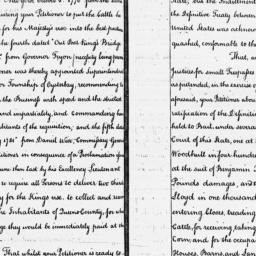 iring your Petitioner to put the battle he
for his Majesty's use into the best postu
the fourth dated "Out Post Kings Bridge
from Governor Tryon
oner was thereby appointed Superintendant
or Township of Oysterbay, recommending to
the Business with speed and the strictest
and impartiality, and commanding him
abitants of the requisition; and the fifth dat
1781" from Daniel Wier, Commissary General
itioners in consequence of a Proclamation of
ure then last by his Excellency Lieutenant
to require all Persons to deliver two thirds
y for the Kings use, to collect and rec
he Inhabitants of Queens County, for wh
ge they would be immediately paid at the
That whilst your Petitioner is ready to
State, but the Indictment
the Definitive Treaty between
United States was acknow
quashed, conformable to the
That, an
Justices for small Trespasses
as pretended, in the exercise of
aforesaid, your Petitioner about
ratification of the Definitive
held to Bail, under several
Court of this State, one at
Woodhull in four hundred
at the suit of Benjamin
Pounds damages, and
Lloyd in one thousand
entering Closes, treading
Cattle, for receiving, taking
Corn; and for the occupa
Houses, Barns, and Lan